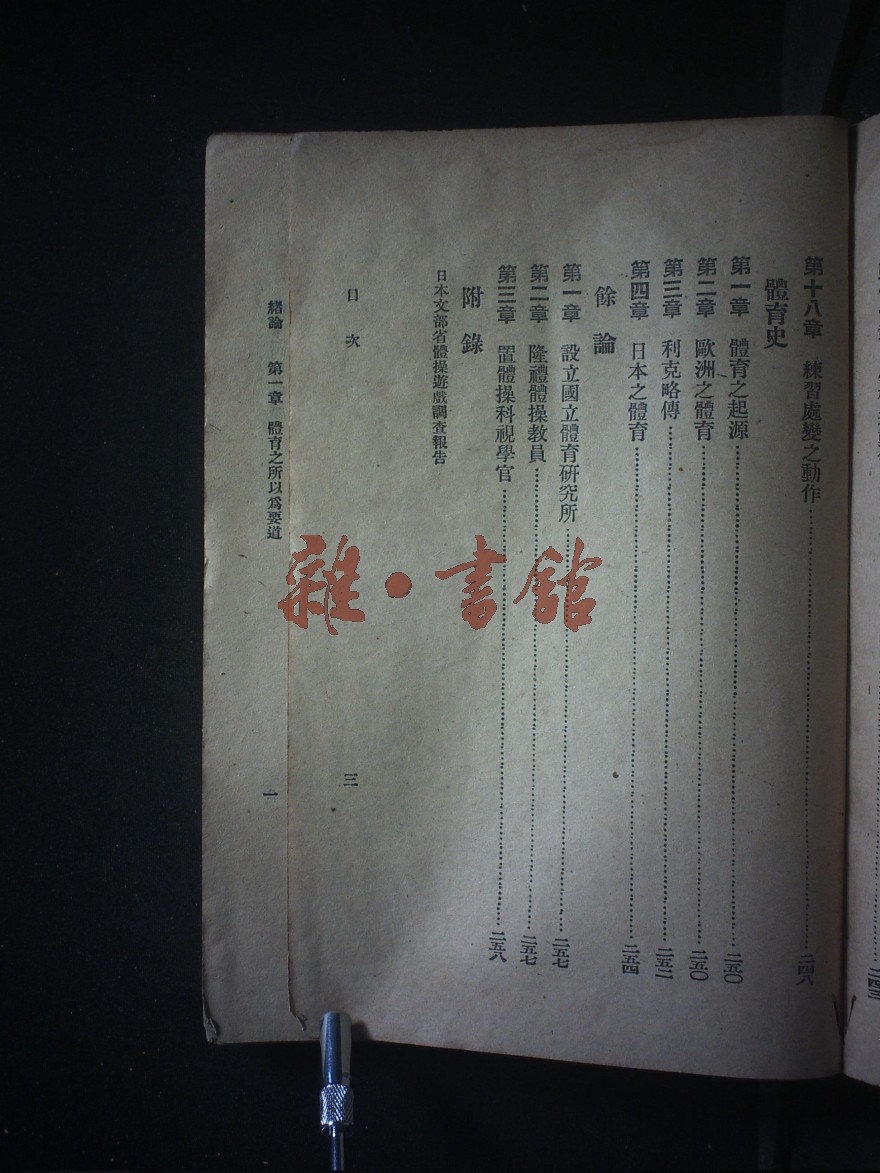 第十八章 練習處變之動作……二四八
體育史
第一章 體育之起源……二五〇
第二章 歐洲之體育……二五〇
第三章 利克略傳……二五二
第四章 日本之體育……二五四
餘論
第一章 設立國立體育研究所……二五七
第二章 隆禮體操教員……二五七
第三章 置體操科視學官……二五八
附錄
日本文部省體操遊戲調查報告
目次 三
緒論 第一章 體育之所以爲要道 一
雜·書館